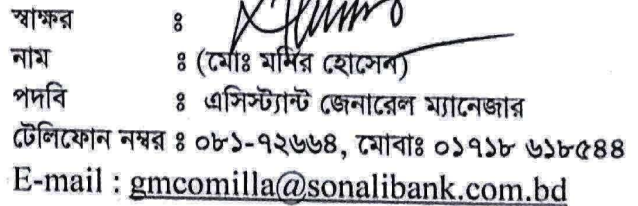 স্বাক্ষর ঃ
নাম ঃ (মোঃ মনির হোসেন)
পদবি ঃ এসিস্ট্যান্ট জেনারেল ম্যানেজার
টেলিফোন নম্বর ঃ ০৮১-৭২৬৬৪, মোবাঃ ০১৭১৮ ৬১৮৫৪৪
E-mail : gmcomilla@sonalibank.com.bd